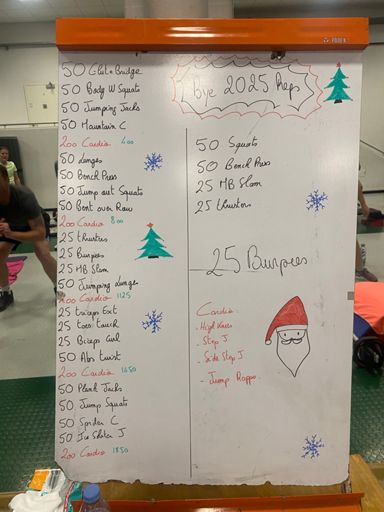 50 Glut. Bridge
50 Body W Squats
50 Jumping Jacks
50 Mountain C
200 Cardio 400
50 Lunges
50 Bench Press
50 Jump out Squats
50 Bent over Row
200 Cardio 800
25 thrusters
25 Burpees
25 MB Slam
50 Jumping Lunges
200 Cardio 1125
25 triceps Ext
25 toes touch
25 Biceps Curl
50 Abs twist
200 Cardio 1450
50 Plank Jacks
50 Jump Squats
50 Spider C
50 Ice Skater J
200 Cardio 1850
Bye 2025 Reps
50 Squats
50 Bench Press
25 MB Slam
25 thrusters
25 Burpees
Cardio
- High Knees
- Step J
- Side Step J
- Jump Ropes